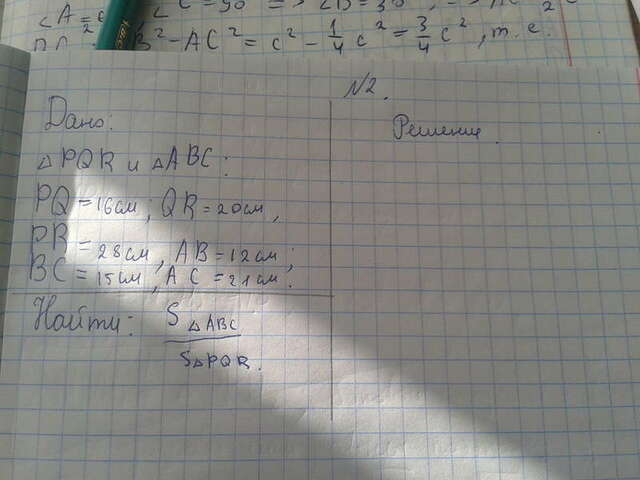 ∠A = ∠C = 90° => ∠B = 30°, => AC
B² - AC² = c² - 1/4 c² = 3/4 c², т. е.
N2.
Дано:
△PQR и △ABC:
PQ = 16см; QR = 20см,
PR = 28см, AB = 12см;
BC = 15см, AC = 21см.
Найти: S△ABC
S△PQR.
Решение.